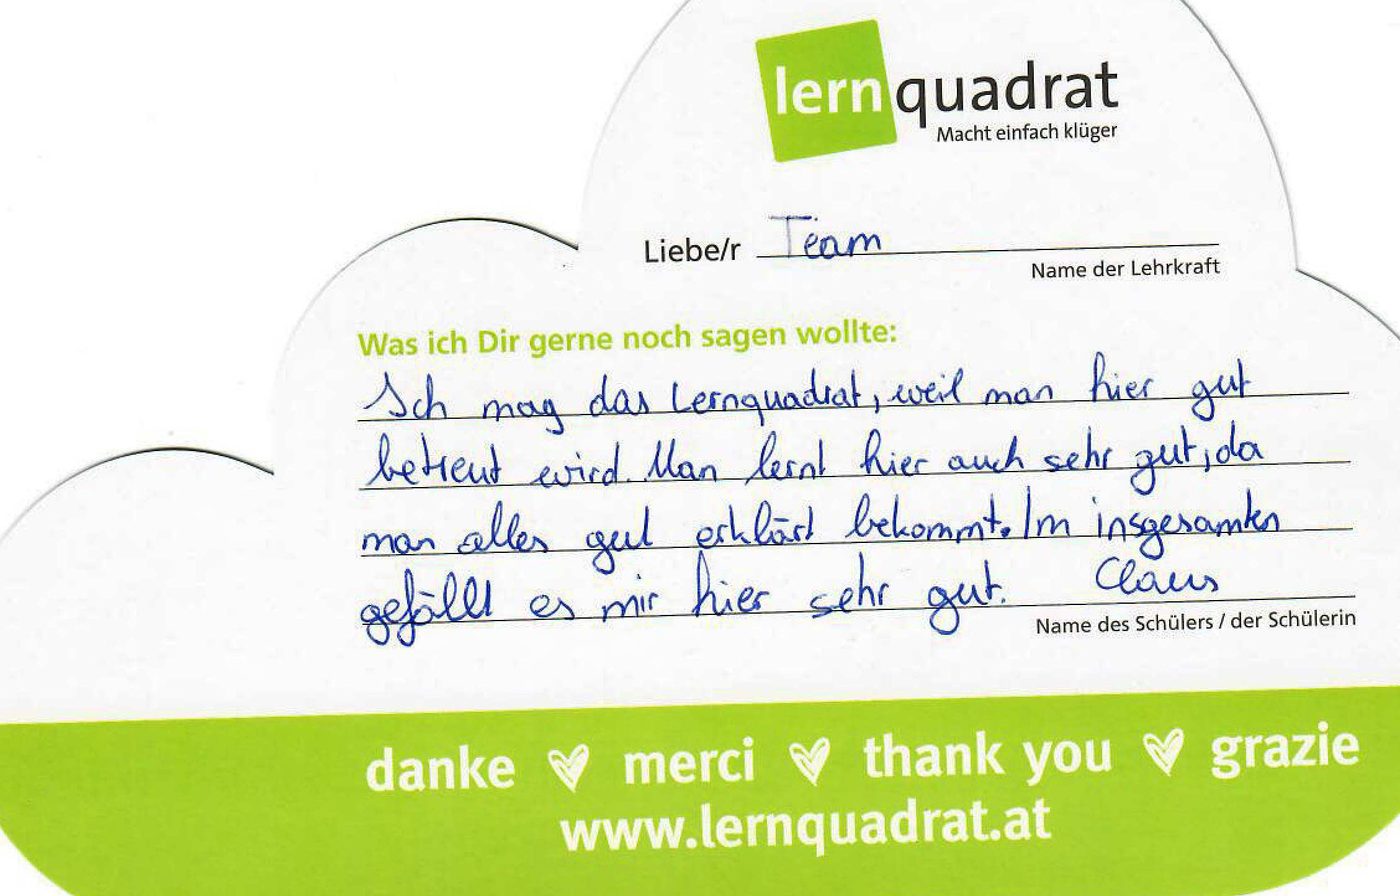 lernquadrat
Macht einfach klüger
Liebe/r Team
Name der Lehrkraft
Was ich Dir gerne noch sagen wollte:
Ich mag das Lernquadrat, weil man hier gut
betreut wird. Man lernt hier auch sehr gut, da
man alles gut erklärt bekommt. Im insgesamten
gefällt es mir hier sehr gut. Claus
Name des Schülers / der Schülerin
danke merci thank you grazie
www.lernquadrat.at